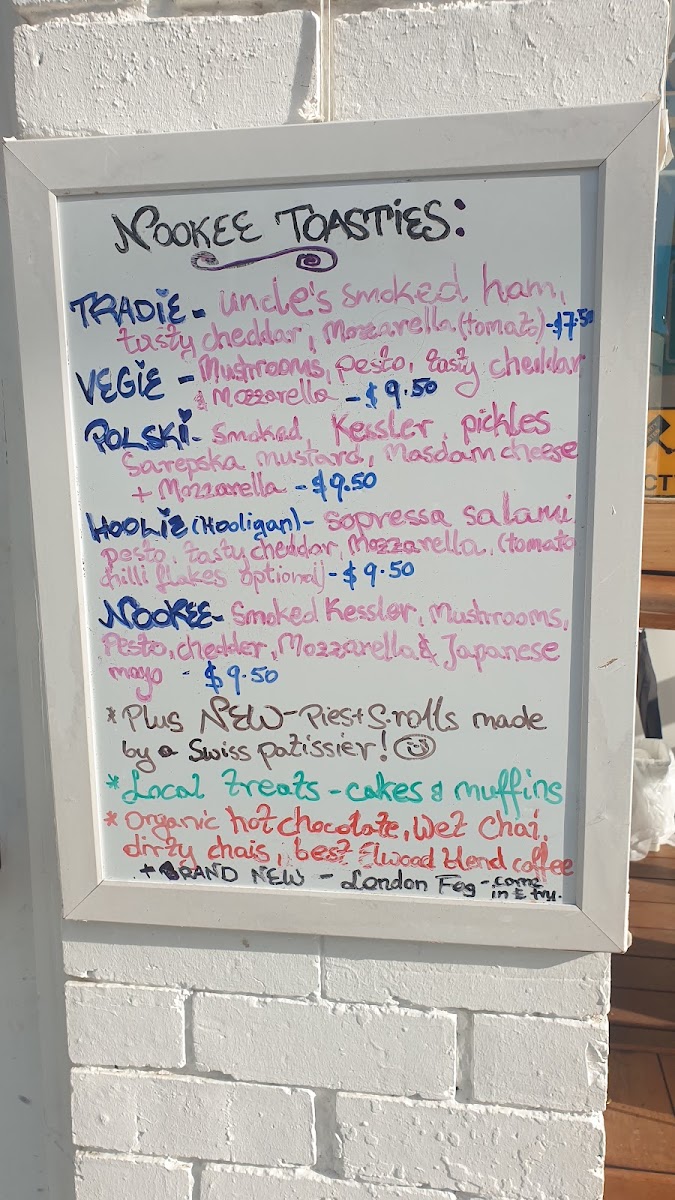 NOOKEE TOASTIES:
TRADIE - uncle's smoked ham,
tasty cheddar, Mozzarella (tomato) - $7.50
VEGIE - Mushrooms, pesto, tasty cheddar
& Mozzarella - $9.50
POLSKI - Smoked Kessler, pickles
Sarepska mustard, Masdam cheese
+ Mozzarella - $9.50
HOOLIE (Hooligan) - sopressa salami,
pesto, tasty cheddar, Mozzarella, (tomato
chilli flakes optional) - $9.50
NOOKEE - Smoked Kessler, Mushrooms,
Pesto, chedder, Mozzarella & Japanese
mayo - $9.50
* Plus NEW - Pies + S.rolls made
by a Swiss patissier!
* Local treats - cakes & muffins
* Organic hot chocolate, Wet Chai,
dirty chais, best Elwood blend coffee
+ BRAND NEW - London Fog - come
in & try.
CT